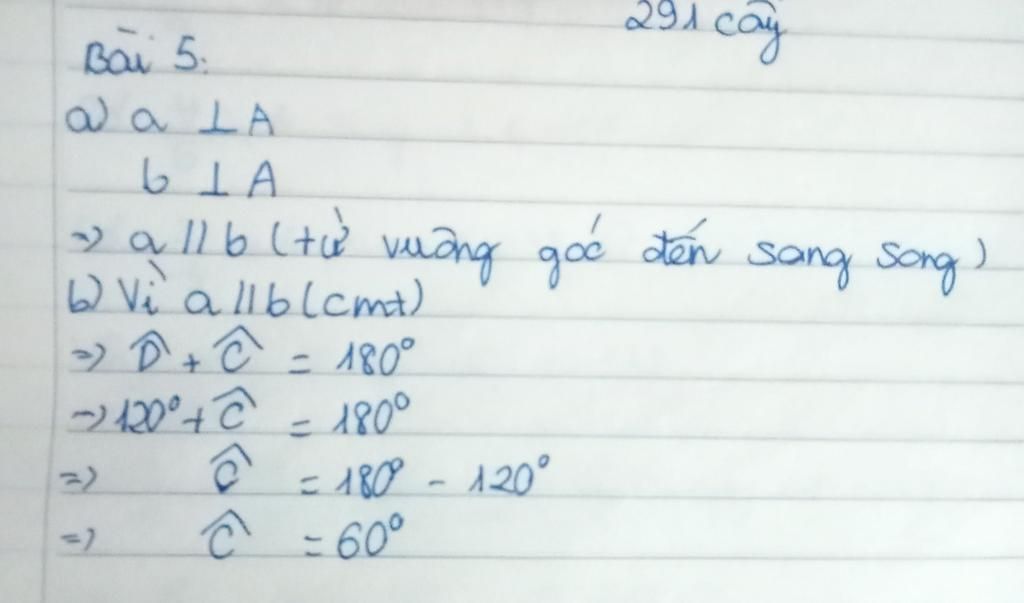 291 cây
Bài 5:
a) a ⊥ A
b ⊥ A
=> a // b (từ vuông góc đến sang song)
b) Vì a // b (cmt)
=> D̂ + Ĉ = 180°
=> 120° + Ĉ = 180°
=> Ĉ = 180° - 120°
=> Ĉ = 60°